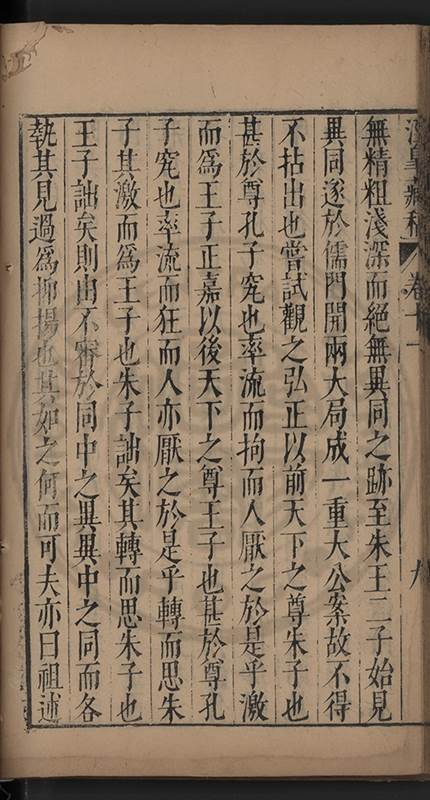 涇臯藏稿 卷十一 九
無精粗淺深而絕無異同之跡至朱王二子始見
異同遂於儒門開兩大局成一重大公案故不得
不拈出也嘗試觀之弘正以前天下之尊朱子也
甚於尊孔子究也率流而拘而人厭之於是乎激
而為王子正嘉以後天下之尊王子也甚於尊孔
子究也率流而狂而人亦厭之於是乎轉而思朱
子其激而為王子也朱子詘矣其轉而思朱子也
王子詘矣則由不審於同中之異異中之同而各
執其見過為抑揚也其如之何而可夫亦曰祖述